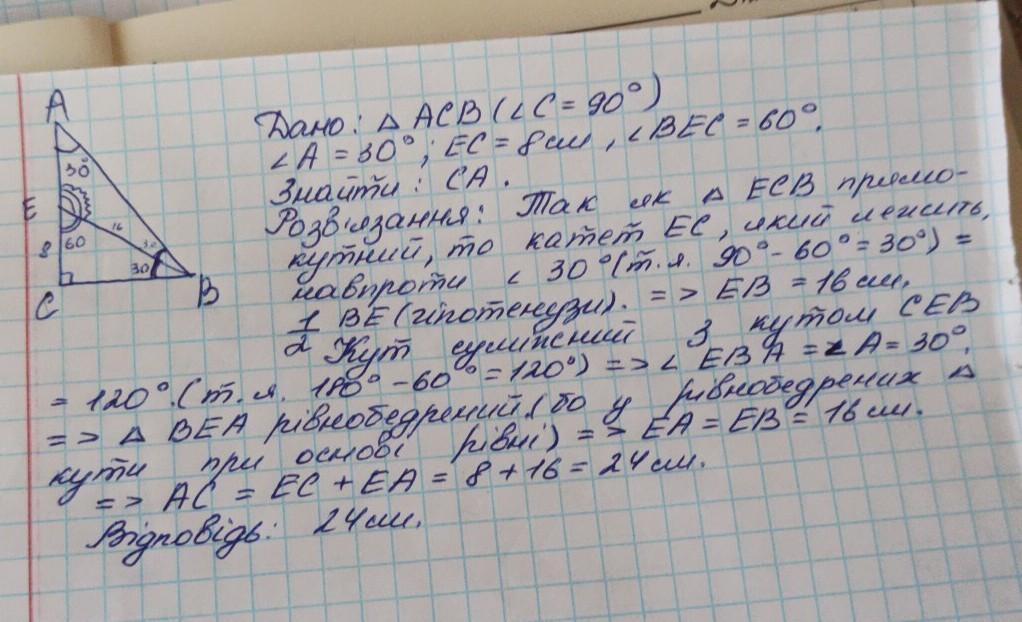 A
30°
E
16
8
60
30
30
C
B
Дано: △ ACB (∠C = 90°)
∠A = 30°; EC = 8см, ∠BEC = 60°.
Знайти: CA.
Розв'язання: Так як △ ECB прямо-
кутний, то катет EC, який лежить,
навпроти ∠ 30° (т.я. 90° - 60° = 30°) =
1/2 BE (гіпотенузи). => EB = 16 см.
Кут суміжний з кутом CEB
= 120°. (т.я. 180° - 60° = 120°) => ∠ EBA = ∠A = 30°.
=> △ BEA рівнобедрений. (бо у рівнобедрених △
кути при основі рівні) => EA = EB = 16 см.
=> AC = EC + EA = 8 + 16 = 24 см.
Відповідь: 24 см.